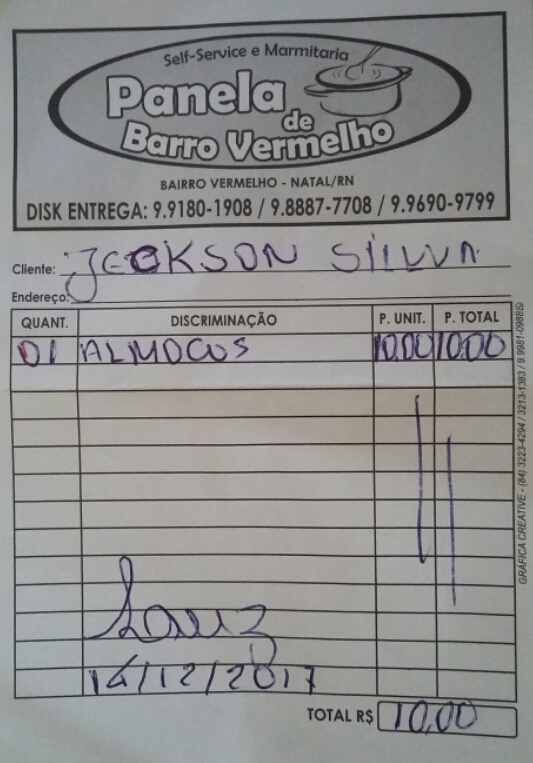 Self-Service e Marmitaria
Panela
de
Barro Vermelho
BAIRRO VERMELHO - NATAL/RN
DISK ENTREGA: 9.9180-1908 / 9.8887-7708 / 9.9690-9799
Cliente: JECKSON SILLVA
Endereço:
QUANT. DISCRIMINAÇÃO P. UNIT. P. TOTAL
01 ALMOCOS 10,00 10,00
14/12/2017
TOTAL R$ 10,00
GRÁFICA CREATIVE - (84) 3223-4294 / 3213-1383 / 9.9981-0988